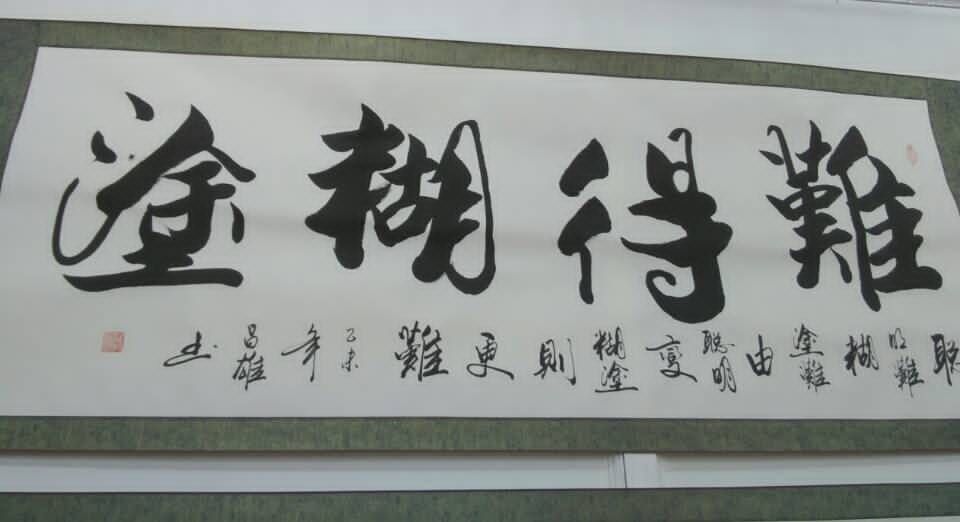 難得糊塗
聪明難糊塗難由聪明变糊塗則更難己未年昌雄书